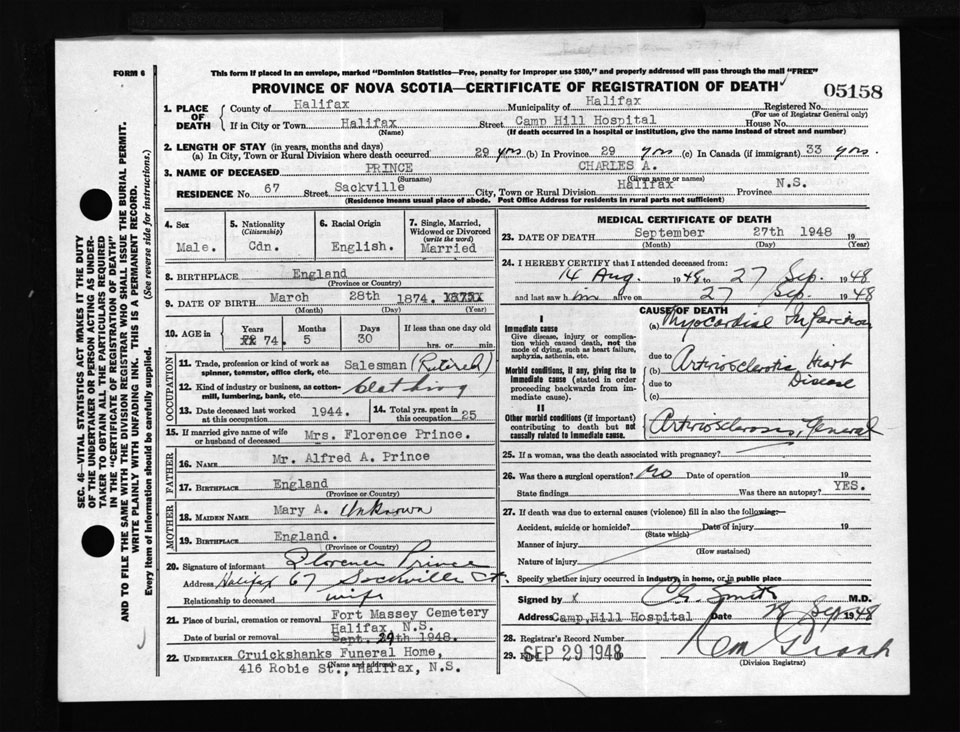 FORM 6
This form if placed in an envelope, marked "Dominion Statistics—Free, penalty for improper use $300," and properly addressed will pass through the mail "FREE"
PROVINCE OF NOVA SCOTIA—CERTIFICATE OF REGISTRATION OF DEATH
05158
1. PLACE OF DEATH County of Halifax Municipality of Halifax Registered No.
(For use of Registrar General only)
If in City or Town Halifax Street Camp Hill Hospital House No.
(Name) (If death occurred in a hospital or institution, give the name instead of street and number)
2. LENGTH OF STAY (in years, months and days)
(a) In City, Town or Rural Division where death occurred 29 yrs (b) In Province 29 yrs (c) In Canada (if immigrant) 33 yrs.
3. NAME OF DECEASED PRINCE CHARLES A.
(Surname) (Given name or names)
RESIDENCE No. 67 Street Sackville City, Town or Rural Division Halifax Province N.S.
(Residence means usual place of abode. Post Office Address for residents in rural parts not sufficient)
4. Sex Male.
5. Nationality (Citizenship) Cdn.
6. Racial Origin English.
7. Single, Married, Widowed or Divorced (write the word) Married
8. BIRTHPLACE England
(Province or Country)
9. DATE OF BIRTH March 28th 1874.
(Month) (Day) (Year)
10. AGE in Years Months Days If less than one day old
74. 5 30 hrs. or min.
OCCUPATION
11. Trade, profession or kind of work as spinner, teamster, office clerk, etc. Salesman (Retired)
12. Kind of industry or business, as cotton-mill, lumbering, bank, etc. Clothing
13. Date deceased last worked at this occupation 1944.
14. Total yrs. spent in this occupation 25
15. If married give name of wife or husband of deceased Mrs. Florence Prince.
FATHER
16. NAME Mr. Alfred A. Prince
17. BIRTHPLACE England
(Province or Country)
MOTHER
18. MAIDEN NAME Mary A. Unknown
19. BIRTHPLACE England.
(Province or Country)
20. Signature of informant Florence Prince
Address Halifax 67 Sackville St.
Relationship to deceased wife
21. Place of burial, cremation or removal Fort Massey Cemetery
Halifax, N.S.
Date of burial or removal Sept. 29th 1948.
22. UNDERTAKER Cruickshanks Funeral Home,
(Name and address)
416 Robie St., Halifax, N.S.
MEDICAL CERTIFICATE OF DEATH
23. DATE OF DEATH September 27th 1948 19
(Month) (Day) (Year)
24. I HEREBY CERTIFY that I attended deceased from:
14 Aug. 1948 to 27 Sep. 1948
and last saw him alive on 27 Sep. 1948
CAUSE OF DEATH
I
Immediate cause
Give disease, injury or complication which caused death, not the mode of dying, such as heart failure, asphyxia, asthenia, etc.
(a) Myocardial Infarction
due to
Morbid conditions, if any, giving rise to immediate cause (stated in order proceeding backwards from immediate cause).
(b) Arteriosclerotic Heart Disease
due to
(c)
II
Other morbid conditions (if important) contributing to death but not causally related to immediate cause.
Arteriosclerosis, General
25. If a woman, was the death associated with pregnancy?
26. Was there a surgical operation? No Date of operation 19
State findings Was there an autopsy? YES.
27. If death was due to external causes (violence) fill in also the following:—
Accident, suicide or homicide? Date of injury 19
(State which)
Manner of injury
(How sustained)
Nature of injury
Specify whether injury occurred in industry, in home, or in public place
Signed by x M.D.
Address Camp Hill Hospital Date 28 Sep 1948
28. Registrar's Record Number
29. SEP 29 1948
(Division Registrar)
SEC. 46—VITAL STATISTICS ACT MAKES IT THE DUTY
OF THE UNDERTAKER OR PERSON ACTING AS UNDER-
TAKER TO OBTAIN ALL THE PARTICULARS REQUIRED
IN THE "CERTIFICATE OF REGISTRATION OF DEATH"
AND TO FILE THE SAME WITH THE DIVISION REGISTRAR WHO SHALL ISSUE THE BURIAL PERMIT.
WRITE PLAINLY WITH UNFADING INK. THIS IS A PERMANENT RECORD.
Every item of information should be carefully supplied. (See reverse side for instructions.)